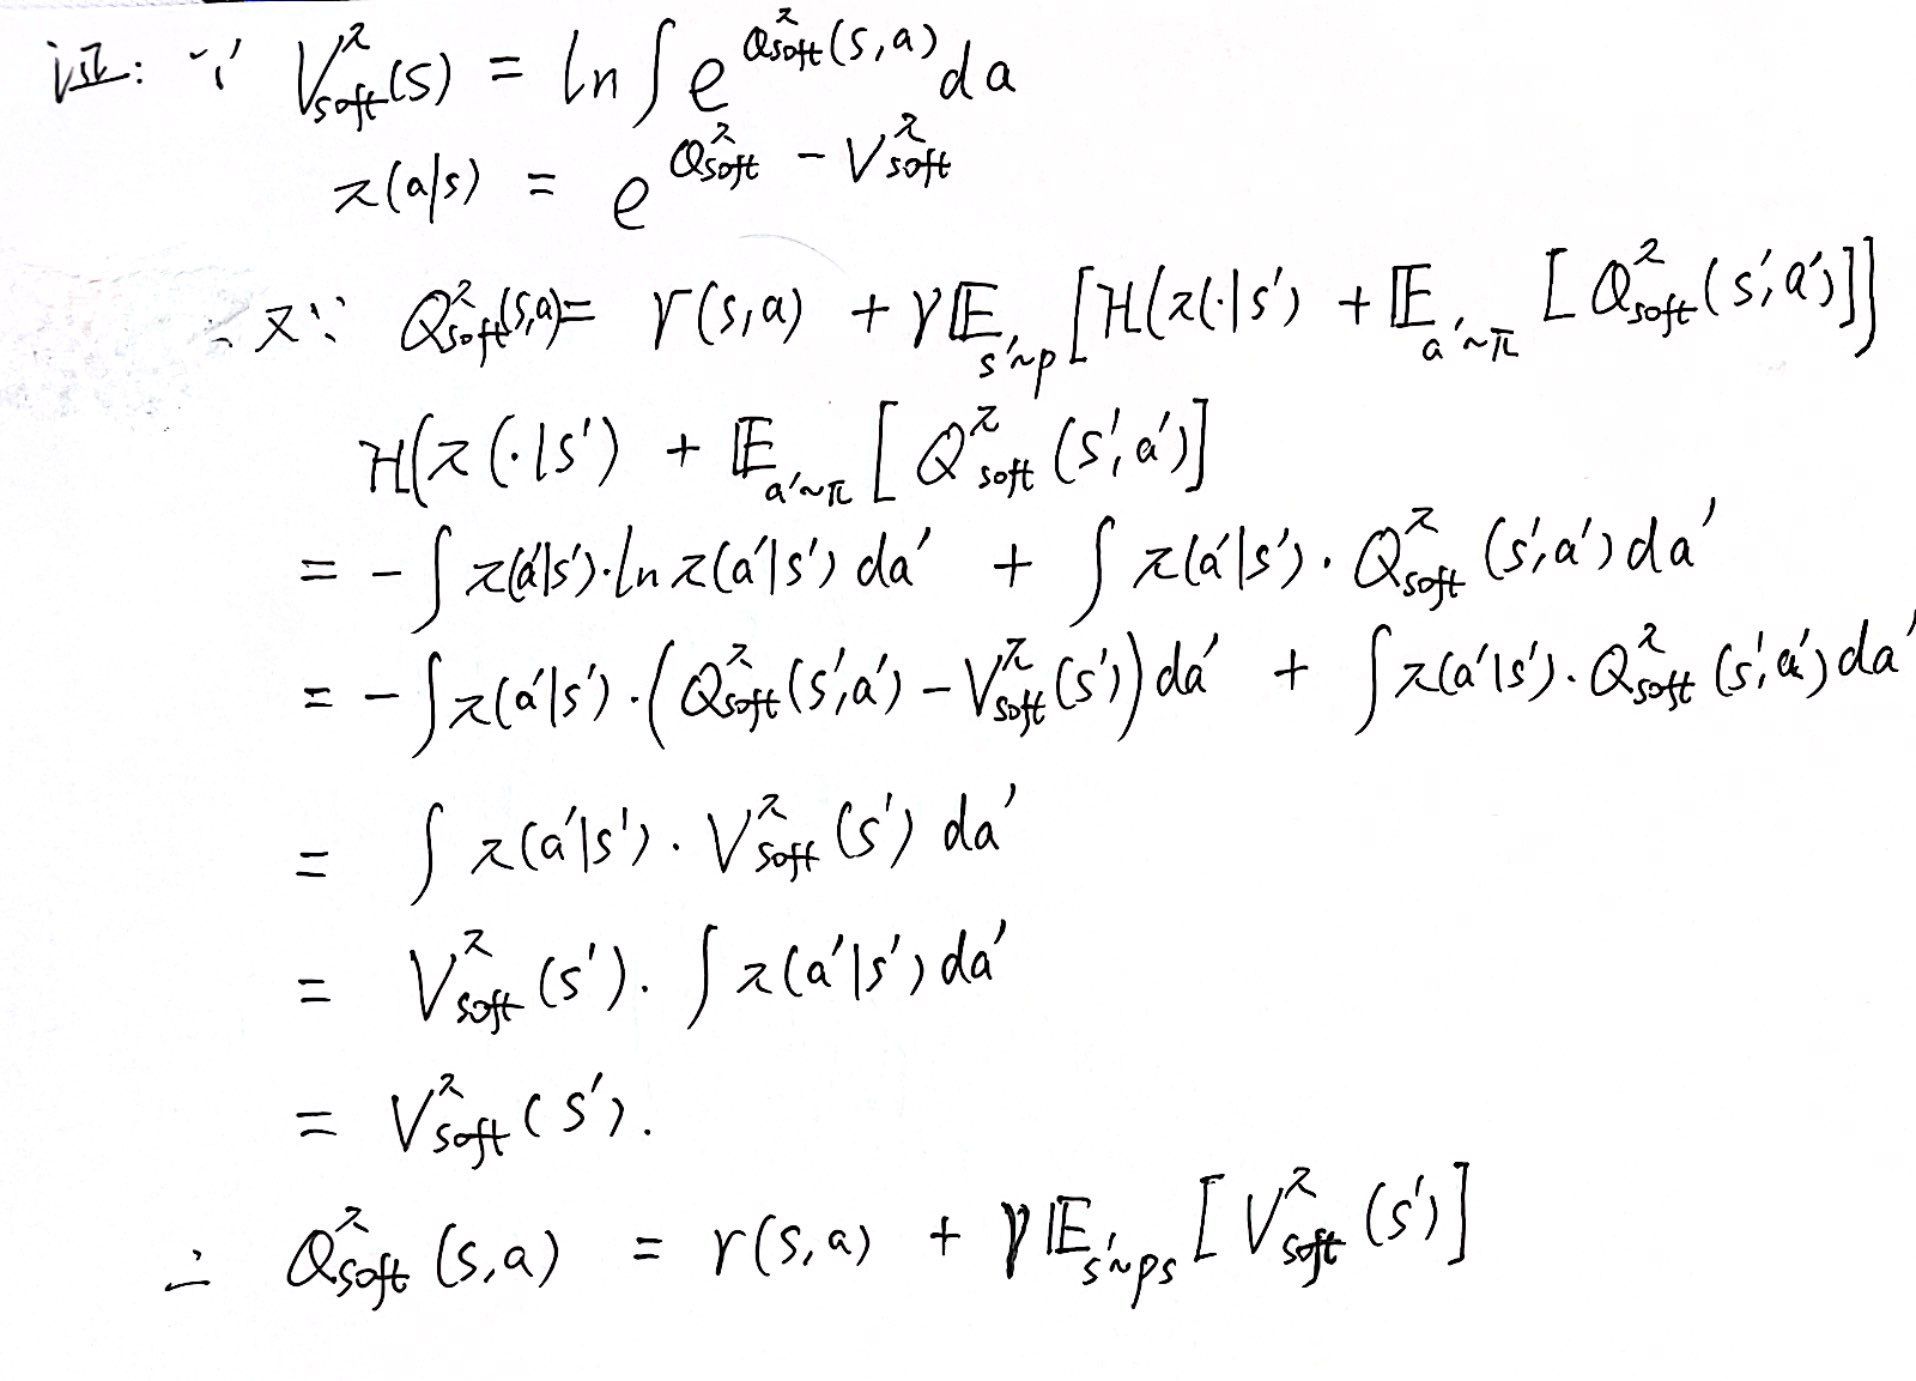 证: ∵ V^π_soft(s) = ln ∫ e^{Q^π_soft(s,a)} da
π(a|s) = e^{Q^π_soft - V^π_soft}
又∵ Q^π_soft(s,a) = r(s,a) + γ𝔼_{s'~p} [H(π(·|s') + 𝔼_{a'~π} [Q^π_soft(s',a')]]
H(π(·|s') + 𝔼_{a'~π} [Q^π_soft(s',a')]
= - ∫ π(a'|s')·ln π(a'|s') da' + ∫ π(a'|s')·Q^π_soft(s',a') da'
= - ∫ π(a'|s')·(Q^π_soft(s',a') - V^π_soft(s')) da' + ∫ π(a'|s')·Q^π_soft(s',a') da'
= ∫ π(a'|s')·V^π_soft(s') da'
= V^π_soft(s')·∫ π(a'|s') da'
= V^π_soft(s').
∴ Q^π_soft(s,a) = r(s,a) + γ𝔼_{s'~ps} [V^π_soft(s')]